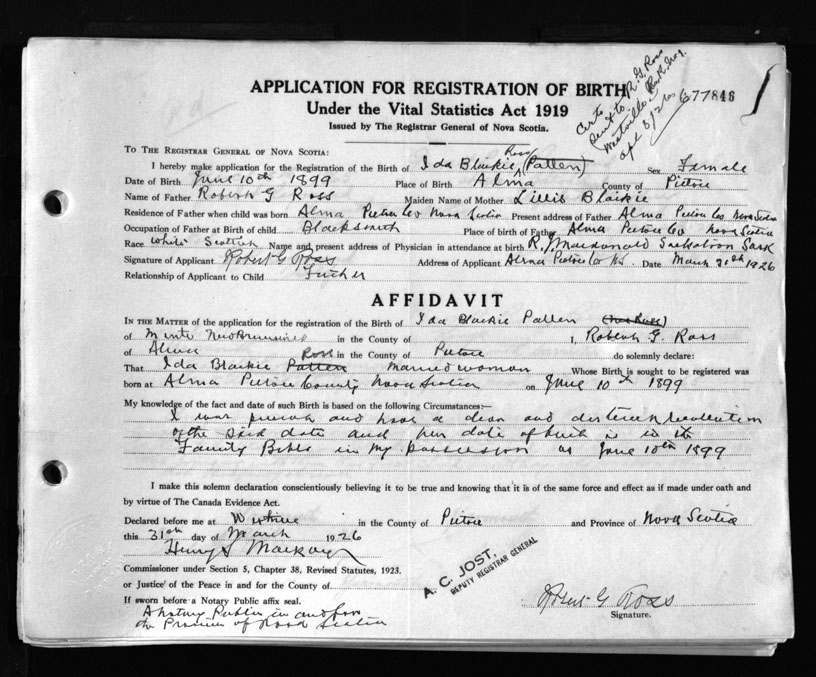 APPLICATION FOR REGISTRATION OF BIRTH
Under the Vital Statistics Act 1919
Issued by The Registrar General of Nova Scotia.
Certe
R. G. Ross
Westville
677846
TO THE REGISTRAR GENERAL OF NOVA SCOTIA:
I hereby make application for the Registration of the Birth of Ida Blaikie Ross (Patten) Sex Female
Date of Birth June 10th 1899 Place of Birth Alma County of Pictou
Name of Father Robert G Ross Maiden Name of Mother Lillis Blaikie
Residence of Father when child was born Alma Pictou Co Nova Scotia Present address of Father Alma Pictou Co Nova Scotia
Occupation of Father at Birth of child Blacksmith Place of birth of Father Alma Pictou Co Nova Scotia
Race White Scottish Name and present address of Physician in attendance at birth R. J. Macdonald Saskatoon Sask
Signature of Applicant Robert G Ross Address of Applicant Alma Pictou Co N.S. Date March 31st 1926
Relationship of Applicant to Child Father
AFFIDAVIT
IN THE MATTER of the application for the registration of the Birth of Ida Blackie Patten
of Minto New Brunswick in the County of I, Robert G. Ross
of Alma in the County of Pictou do solemnly declare:
That Ida Blaikie Patten Ross married woman Whose Birth is sought to be registered was
born at Alma Pictou County Nova Scotia on June 10th 1899
My knowledge of the fact and date of such Birth is based on the following Circumstances:—
I was present and have a clear and distinct recollection
of the said date and her date of birth is in the
Family Bible in my possession as June 10th 1899
I make this solemn declaration conscientiously believing it to be true and knowing that it is of the same force and effect as if made under oath and
by virtue of The Canada Evidence Act.
Declared before me at Westville in the County of Pictou and Province of Nova Scotia
this 31st day of March 1926
Henry S Mackay
Commissioner under Section 5, Chapter 38, Revised Statutes, 1923.
or Justice of the Peace in and for the County of
A. C. JOST,
DEPUTY REGISTRAR GENERAL
If sworn before a Notary Public affix seal.
A Notary Public in and for
the Province of Nova Scotia
Robert G Ross
Signature.